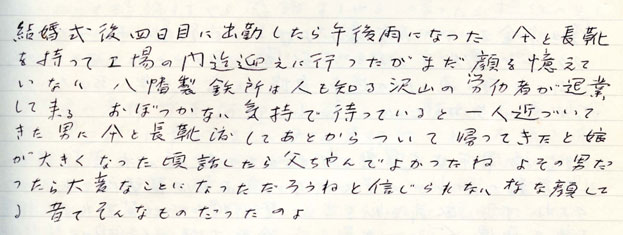 結婚式後四日目に出勤したら午後雨になった 傘と長靴
を持って工場の門迄迎えに行ったがまだ顔を憶えて
いない 八幡製鉄所は人も知る沢山の労仂者が退業
して来る おぼつかない気持で待っていると一人近づいて
きた男に傘と長靴渡してあとからついて帰ってきたと娘
が大きくなった頃話したら父ちゃんでよかったね よその男だ
ったら大変なことになっただろうねと信じられない様な顔して
る 昔てそんなものだったのよ